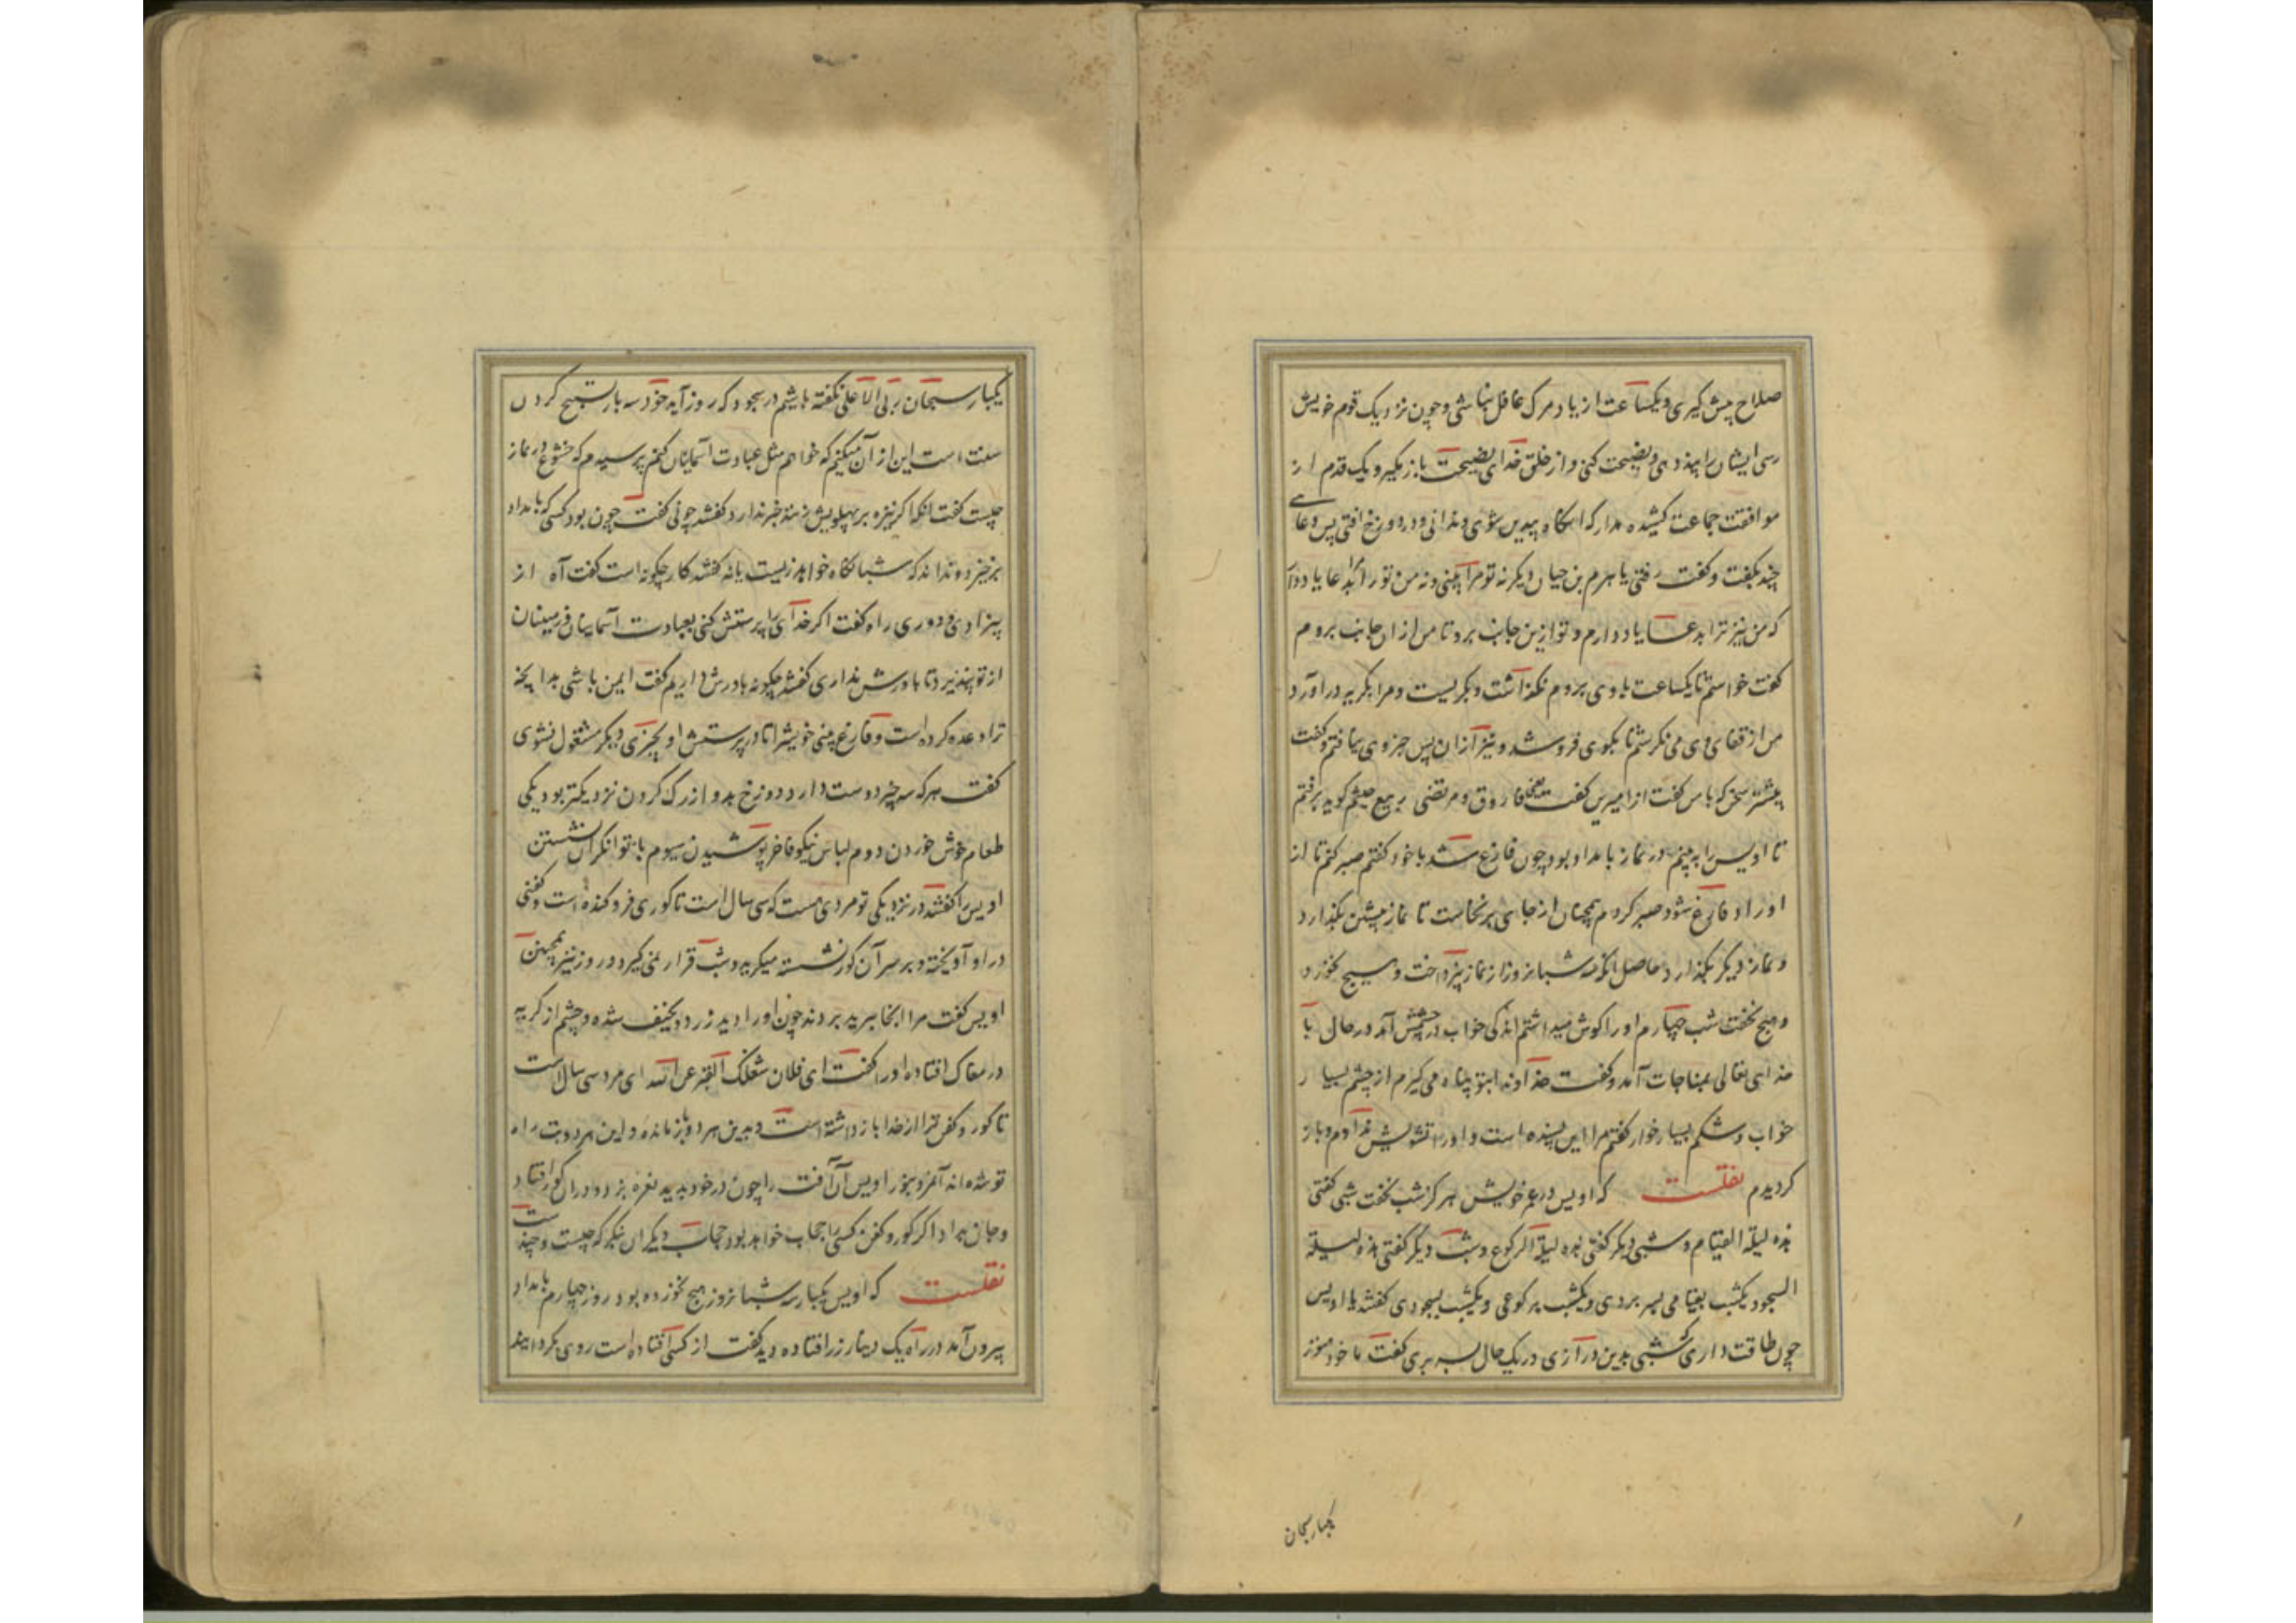 صلاح پیش گیری و یکساعت از یاد مرگ غافل نباشی و چون نزدیک قوم خویش
رسی ایشان را پند دهی و نصیحت کنی و از خلق خدای نصیحت باز نگیر و یک قدم از
موافقت جماعت کشیده مدار که آنگاه بیدین شوی و ندانی و در دوزخ افتی پس دعای
چند بگفت و گفت رفتی یا هرم بن حیان دیگر نه تو مرا بینی و نه من تو را بدعا یاد دار
که من نیز ترا بدعا یاد دارم و تو ازین جانب برو تا من از ان جانب بروم
گفت خواستم تا یکساعت با وی بروم نگذاشت و بگریست و مرا بگریه در آورد
من از قفای وی می نگرستم تا بکوی فرو شد و نیز از ان پس خبر وی نیافتم و گفت
بیشتر سخن که با من گفت از امیرین گفت فاروق و مرتضی ربیع خثیم گوید برفتم
تا اویس را ببینم در نماز بامداد بود چون فارغ شد با خود گفتم صبر کنم تا از
اوراد فارغ شود صبر کردم همچنان از جای برنخاست تا نماز پیشین بگذارد
و نماز دیگر بگذارد حاصل که سه شبانروز از نماز نپرداخت و هیچ نخورد
و هیچ نخفت شب چهارم او را گوش میداشتم اندکی خواب در چشمش آمد در حال با
خدای تعالی بمناجات آمد و گفت خداوندا بتو پناه می گیرم از چشم بسیار
خواب و شکم بسیار خوار گفتم مرا این بسنده است و او را تشویش ندادم و باز
گردیدم نقلست که اویس در عمر خویش هرگز شب نخفت شبی گفتی
هذه لیلة القیام و شبی دیگر گفتی هذه لیلة الرکوع و شب دیگر گفتی هذه لیلة
السجود یکشب بقیام بسر بردی و یکشب برکوعی و یکشب بسجودی گفتند یا اویس
چون طاقت داری که شبی بدین درازی در یک حال بسر بری گفت ما خود هنوز
یکبار سبحان
یکبار سبحان ربی الاعلی نگفته باشیم در سجود که روز آید خود سه بار تسبیح کردن
سنت است این از آن میکنم که خواهم مثل عبادت آسمانیان کنم پرسیدم که خشوع در نماز
چیست گفت انکه اگر نیزه بر پهلویش زنند خبر ندارد گفتند چونی گفت چون بود کسی که بامداد
برخیزد و نداند که شبانگاه خواهد زیست یا نه گفتند کار چگونه است گفت آه از
بیزادی و دوری راه گفت اگر خدای را پرستش کنی بعبادت آسمانیان و زمینیان
از تو نپذیرد تا باورش نداری گفتند چگونه باورش داریم گفت ایمن باشی بدانچه
ترا وعده کرده است و فارغ بینی خویش را تا در پرستش او بچیزی دیگر مشغول نشوی
گفت هر که سه چیز دوست دارد دوزخ بدو از رگ گردن نزدیکتر بود یکی
طعام خوش خوردن دوم لباس نیکو فاخر پوشیدن سیوم با توانگران نشستن
اویس را گفتند در نزدیکی تو مردی هست که سی سال است تا گوری فرو کنده است و کفنی
در او آویخته و بر سر آن گور نشسته میگرید و شب قرار نمی گیرد و روز نیز همچنین
اویس گفت مرا انجا برید بردند چون او را دید زرد و نحیف شده و چشم از گریه
در مغاک افتاده او را گفت ای فلان شغلک القبر عن الله ای مرد سی سال است
تا گور و کفن ترا از خدا باز داشته است و بدین هر دو باز مانده و این هر دو بت راه
تو شده اند آنمرد بنور اویس آن آفت را چون در خود بدید نعره بزد و در ان گور افتاد
و جان بداد اگر گور و کفن کسی را حجاب خواهد بود حجاب دیگران بنگر که چیست و چند است
نقلست که اویس یکبار سه شبانروز هیچ نخورده بود روز چهارم بامداد
بیرون آمد در راه یک دینار زر افتاده دید گفت از کسی افتاده است روی بگردانید